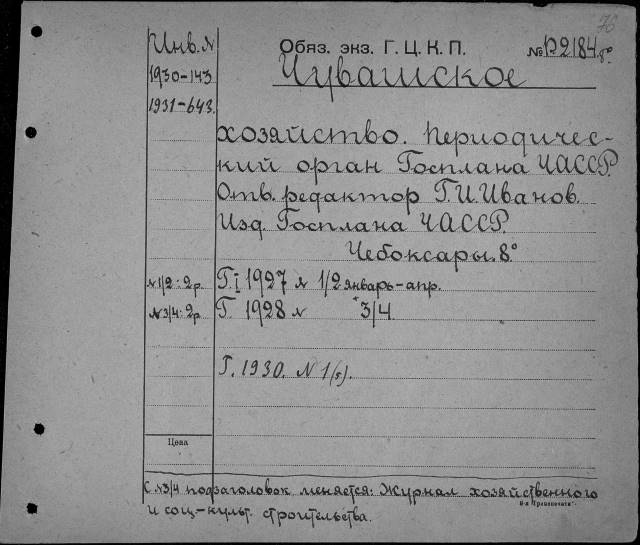 76
Инв. №
Обяз. экз. Г. Ц. К. П.
№ П2184 б°
Чувашское
1930-143
1931-643.
хозяйство. Периодичес-
кий орган Госплана ЧАССР.
Отв. редактор Г.И.Иванов.
Изд. Госплана ЧАССР.
Чебоксары. 8°
№1/2: 2р. Г.I 1927 № 1/2 январь-апр.
№3/4: 2р. Г. 1928 № 3/4.
Г. 1930. № 1(5).
Цена
С №3/4 подзаголовок меняется: Журнал хозяйственного
и соц-культ. строительства.